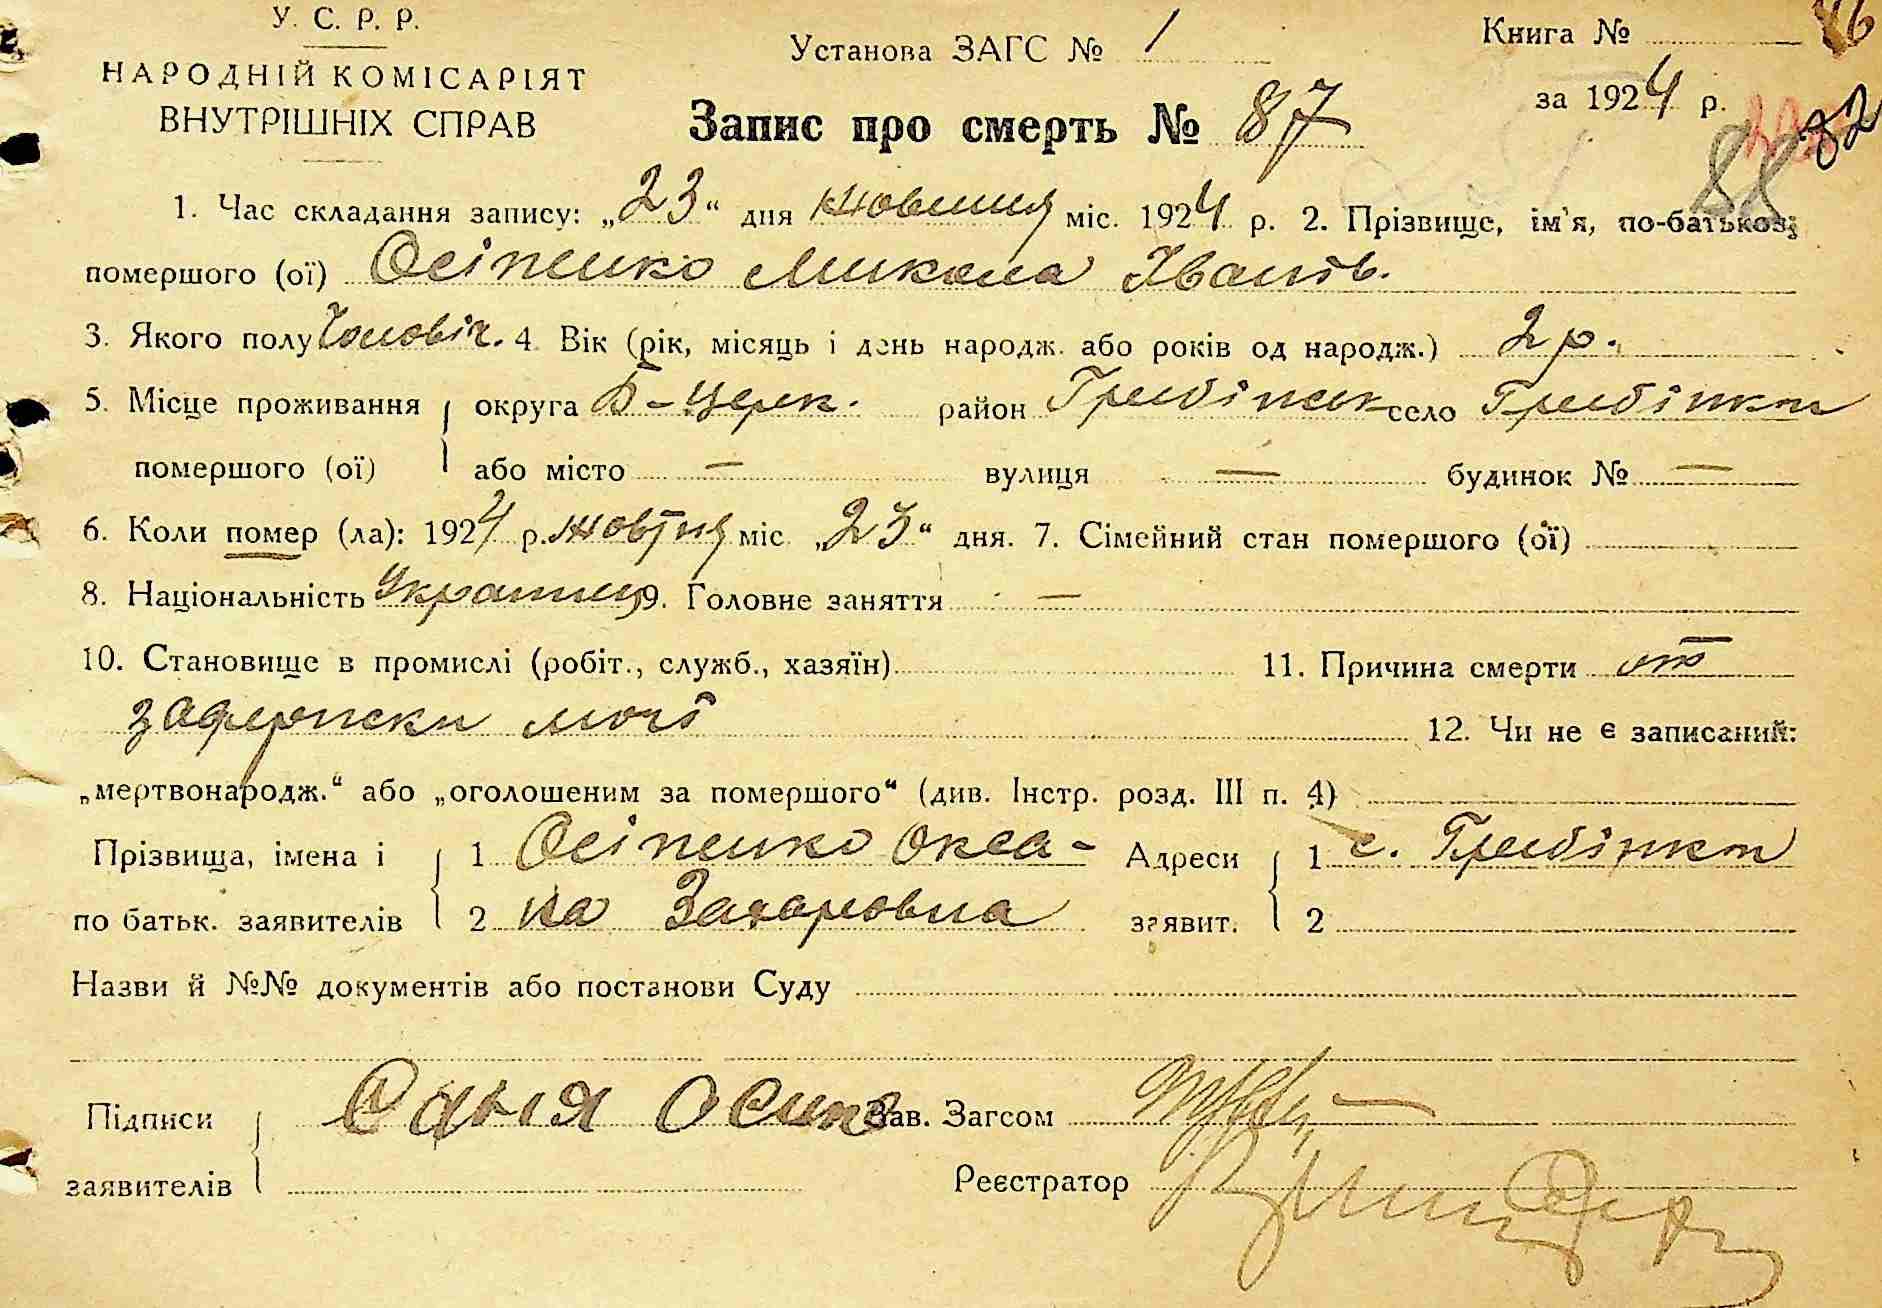 У. С. Р. Р.
НАРОДНІЙ КОМІСАРІЯТ
ВНУТРІШНІХ СПРАВ
Установа ЗАГС № 1
Книга №
86
за 1924 р.
82
88
Запис про смерть № 87
1. Час складання запису: „23“ дня жовтня міс. 1924 р. 2. Прізвище, ім'я, по-батькові
помершого (ої) Осіпенко Микола Іванів.
3. Якого полу Чоловіч. 4 Вік (рік, місяць і день народж. або років од народж.) 2 р.
5. Місце проживання округа Б-Церк. район Гребінськ село Гребінки
помершого (ої) або місто — вулиця — будинок № —
6. Коли помер (ла): 1924 р. жовтня міс. „23“ дня. 7. Сімейний стан помершого (ої)
8. Національність Українец 9. Головне заняття —
10. Становище в промислі (робіт., служб., хазяїн) 11. Причина смерти от
задержки мочі
12. Чи не є записаний:
„мертвонародж.“ або „оголошеним за помершого“ (див. Інстр. розд. III п. 4)
Прізвища, імена і 1 Осіпенко Окса- Адреси 1 с. Гребінки
по батьк. заявителів 2 на Захаровна заявит. 2
Назви й №№ документів або постанови Суду
Підписи Осип Зав. Загсом
заявителів Реєстратор